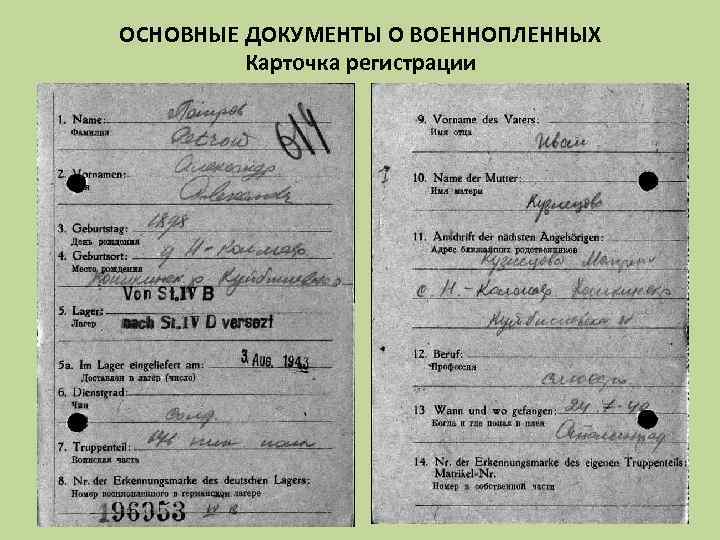 ОСНОВНЫЕ ДОКУМЕНТЫ О ВОЕННОПЛЕННЫХ
Карточка регистрации
1. Name:
Фамилия
Petrow
614
2. Vornamen:
Александр
Alexandr
3. Geburtstag: 1898
День рождения
4. Geburtsort:
Место рождения
Кошкинск р Куйбышевско
Von St. IV B
5. Lager: nach St. IV D versezt
Лагерь
5a. Im Lager eingeliefert am: 3. Aug. 1943
Доставлен в лагерь (число)
6. Dienstgrad:
Чин
солд
7. Truppenteil:
Воинская часть
8. Nr. der Erkennungsmarke des deutschen Lagers:
Номер военнопленного в германском лагере
196053 IV B
9. Vorname des Vaters:
Имя отца
Иван
10. Name der Mutter:
Имя матери
Кузнецова
11. Anschrift der nächsten Angehörigen:
Адрес ближайших родственников
Кузнецова
с. Н.-
12. Beruf:
Профессия
слесарь
13 Wann und wo gefangen: 24.7-42
Когда и где попал в плен
Сталинград
14. Nr. der Erkennungsmarke des eigenen Truppenteils:
Matrikel-Nr.
Номер в собственной части